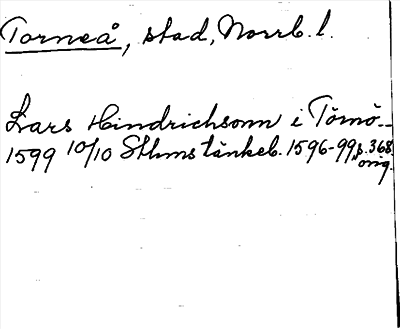 Torneå, stad, Norrb. l.
Lars Hindrichsonn i Tömö--
1599 10/10 Sthms tänkeb. 1596-99, s. 368.
orig.